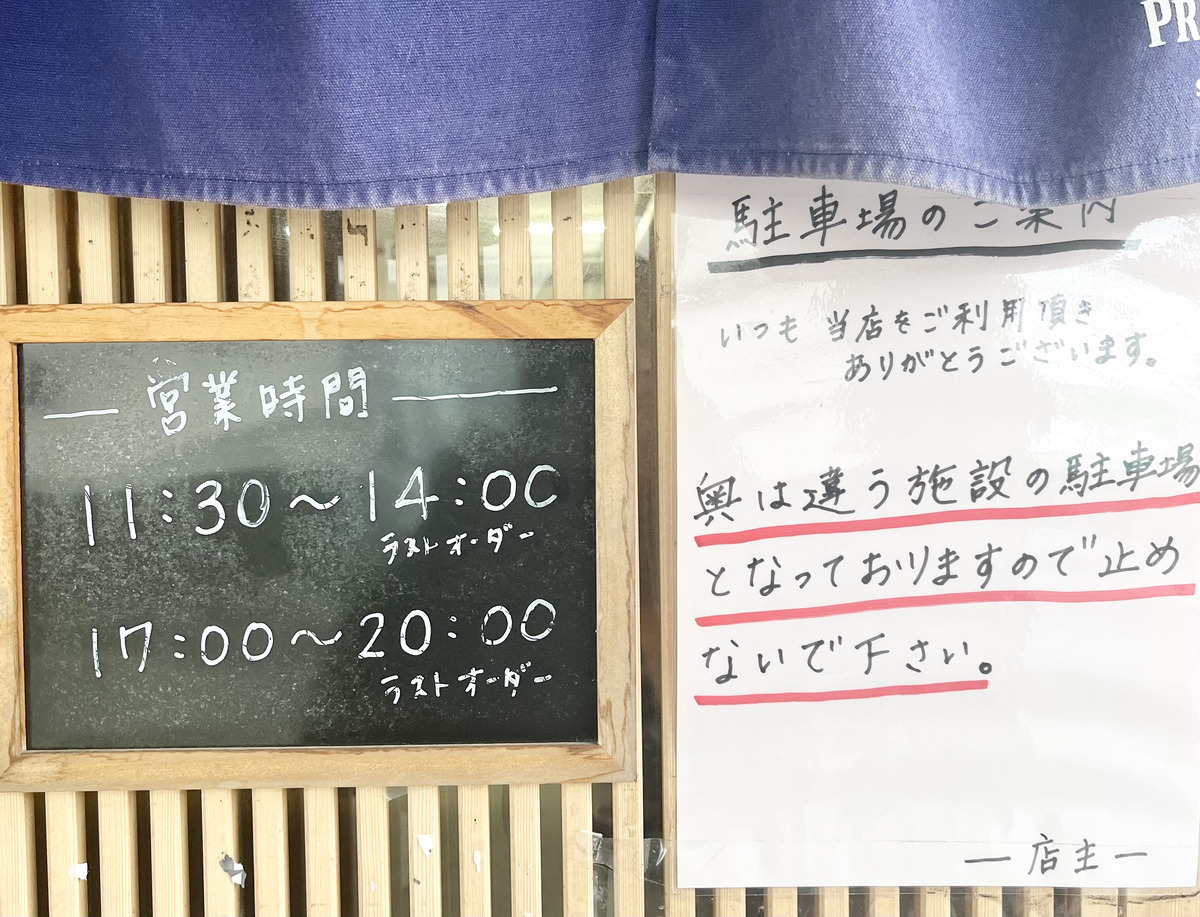 PR
営業時間
11:30～14:00
ラストオーダー
17:00～20:00
ラストオーダー
駐車場のご案内
いつも 当店をご利用頂き
ありがとうございます。
奥は違う施設の駐車場
となっておりますので止め
ないで下さい。
ー店主ー